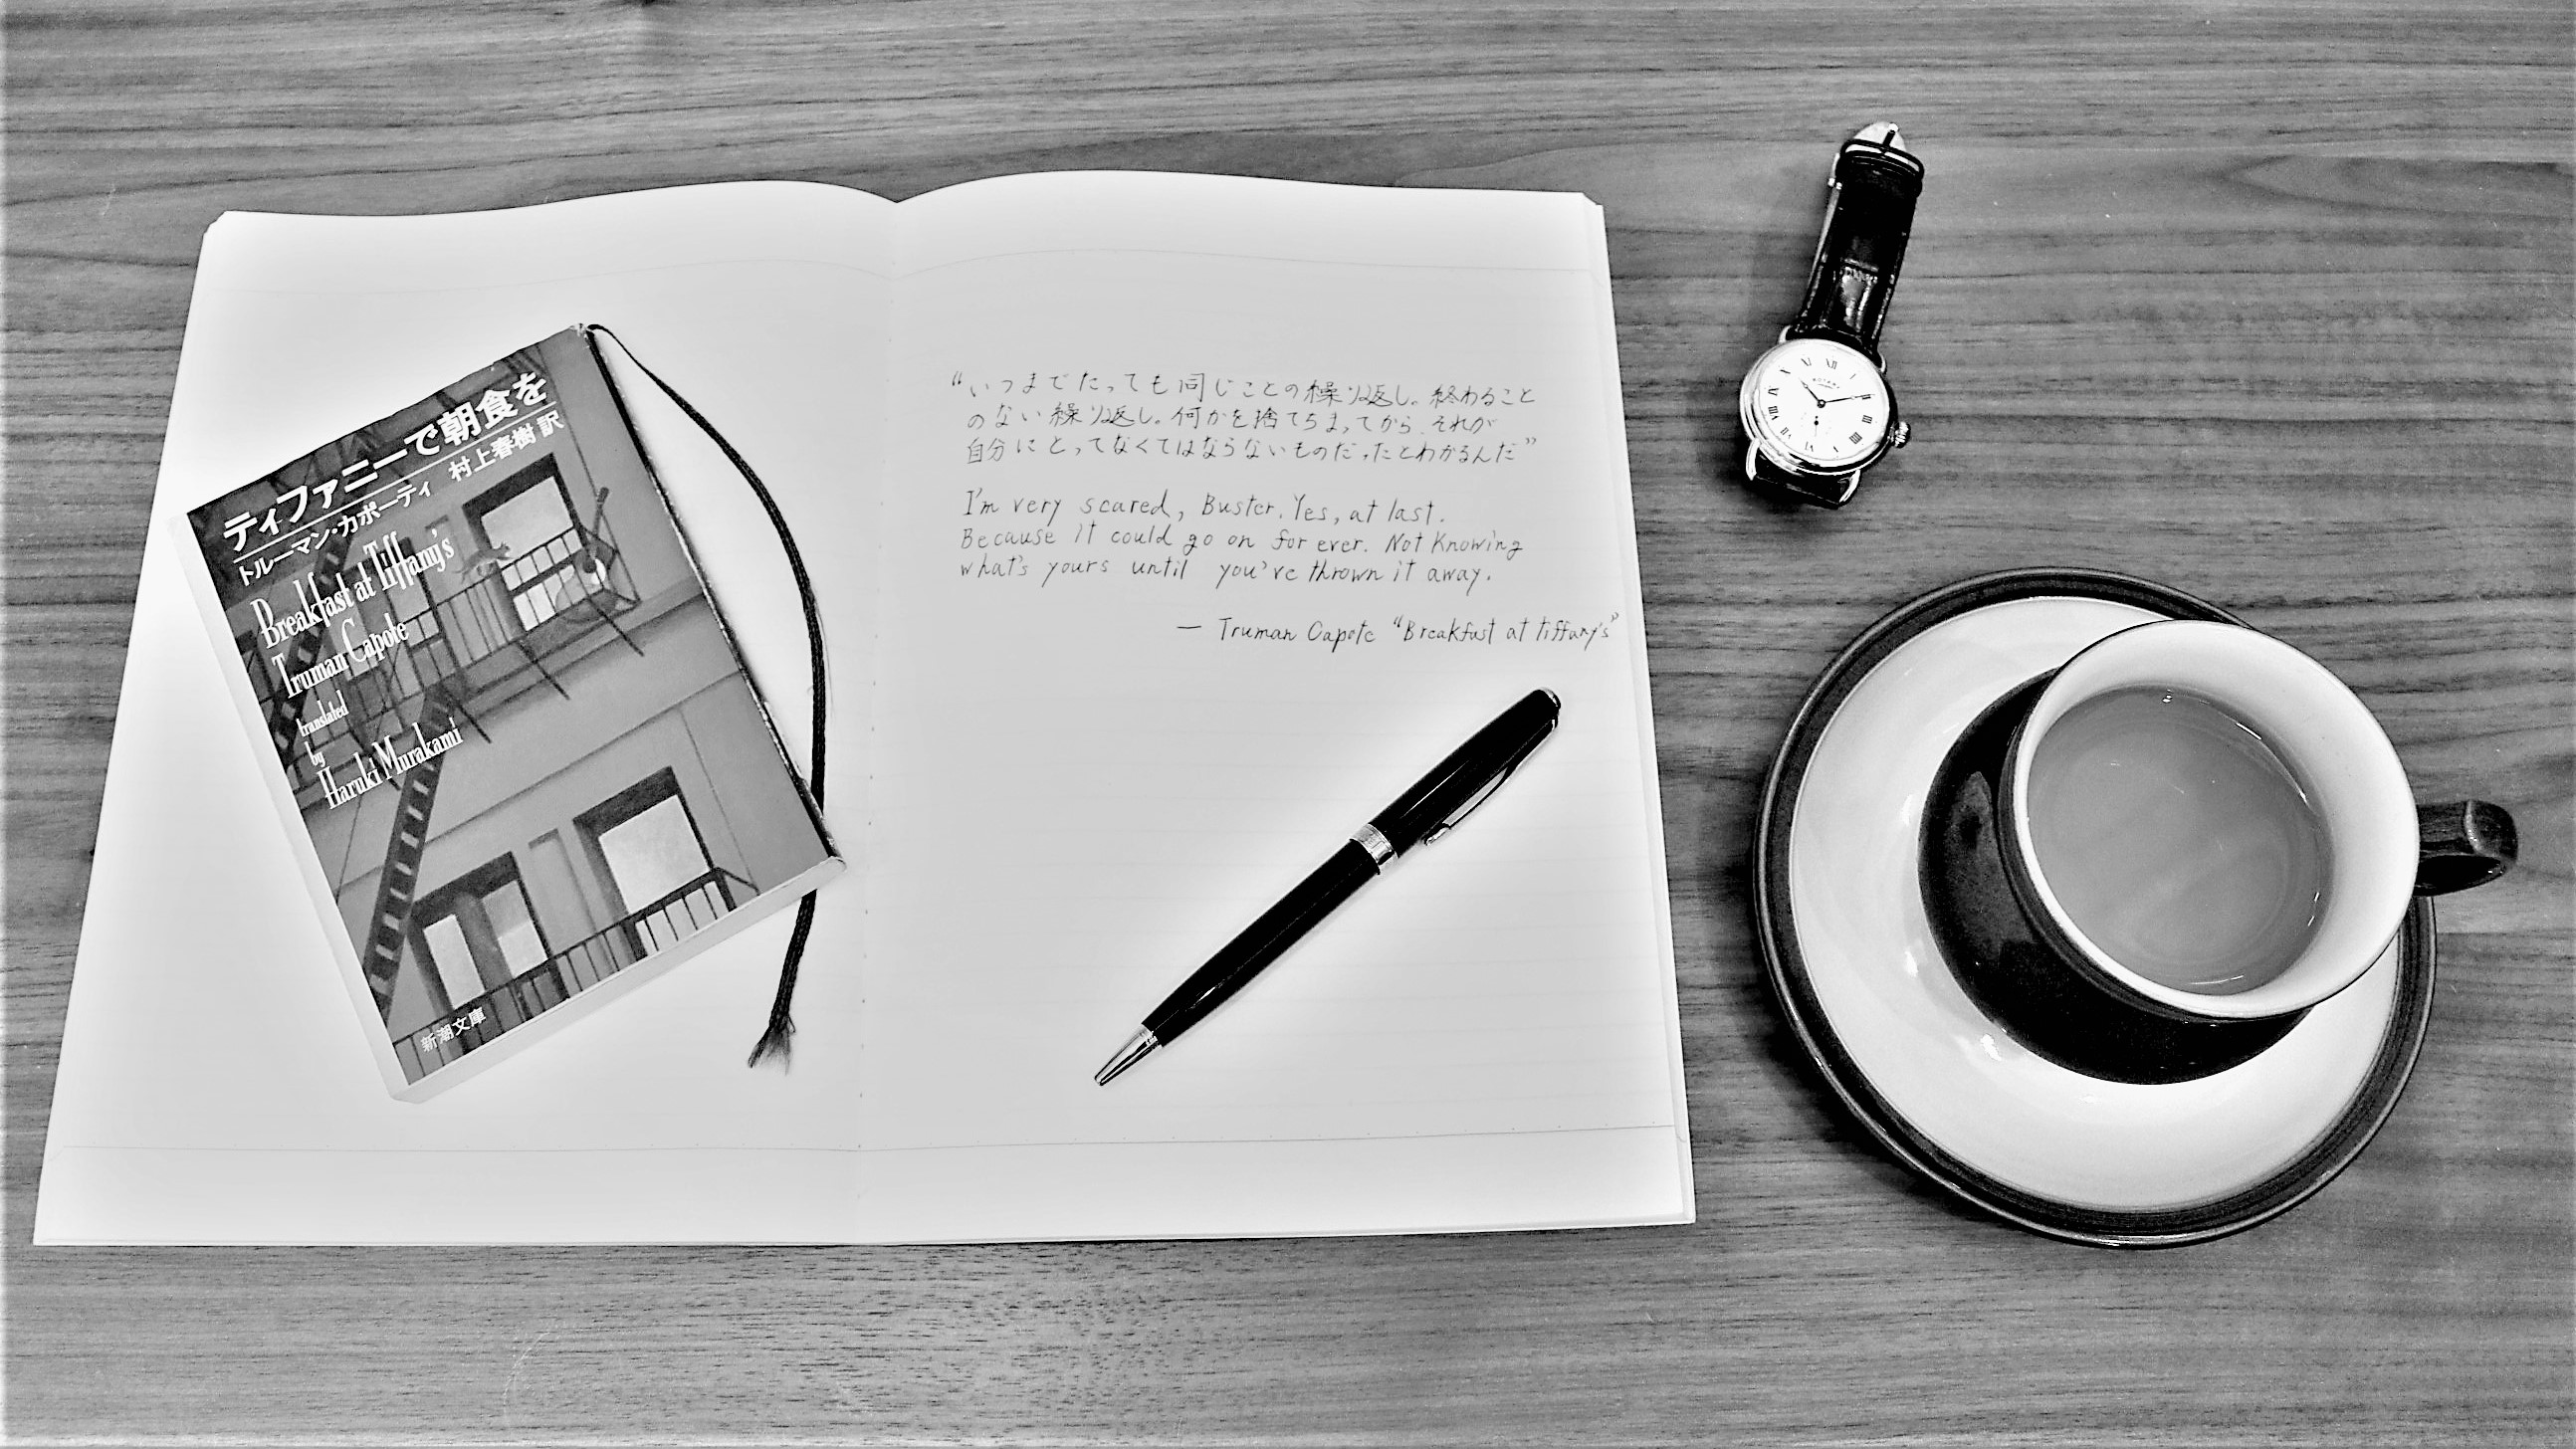 ティファニーで朝食を
トルーマン・カポーティ 村上春樹 訳
Breakfast at Tiffany's
Truman Capote
translated
by
Haruki Murakami
新潮文庫
“いつまでたっても同じことの繰り返し。終わること
のない繰り返し。何かを捨てちまってから、それが
自分にとってなくてはならないものだったとわかるんだ”
I'm very scared, Buster. Yes, at last.
Because it could go on for ever. Not Knowing
what's yours until you've thrown it away.
— Truman Capote “Breakfast at tiffany's”
ROTARY
XII
I
II
III
IIII
VI
VII
VIII
IX
X
XI